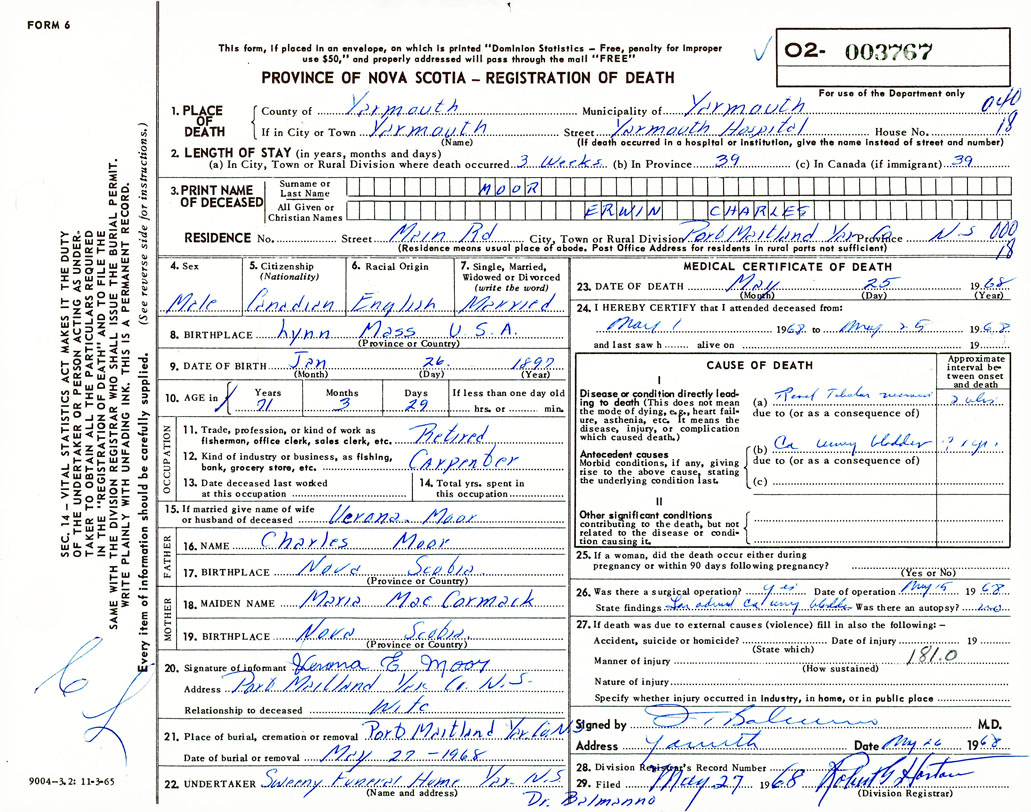 FORM 6
This form, if placed in an envelope, on which is printed "Dominion Statistics – Free, penalty for improper
use $50," and properly addressed will pass through the mail "FREE"
02- 003767
PROVINCE OF NOVA SCOTIA – REGISTRATION OF DEATH
For use of the Department only
1. PLACE OF DEATH County of Yarmouth Municipality of Yarmouth 040
If in City or Town Yarmouth Street Yarmouth Hospital House No. 18
(Name) (If death occurred in a hospital or institution, give the name instead of street and number)
2. LENGTH OF STAY (in years, months and days)
(a) In City, Town or Rural Division where death occurred 3 Weeks (b) In Province 39 (c) In Canada (if immigrant) 39
3. PRINT NAME OF DECEASED
Surname or Last Name MOOR
All Given or Christian Names ERWIN CHARLES
RESIDENCE No. Street Main Rd City, Town or Rural Division Port Maitland Yar Co Province N.S 000
(Residence means usual place of abode. Post Office Address for residents in rural parts not sufficient) 18
4. Sex Male
5. Citizenship (Nationality) Canadian
6. Racial Origin English
7. Single, Married, Widowed or Divorced (write the word) Married
8. BIRTHPLACE Lynn Mass U.S.A.
(Province or Country)
9. DATE OF BIRTH Jan 26 1897
(Month) (Day) (Year)
10. AGE in Years 71 Months 3 Days 29 If less than one day old hrs. or min.
OCCUPATION
11. Trade, profession, or kind of work as fisherman, office clerk, sales clerk, etc. Retired
12. Kind of industry or business, as fishing, bank, grocery store, etc. Carpenter
13. Date deceased last worked at this occupation
14. Total yrs. spent in this occupation
15. If married give name of wife or husband of deceased Verona Moor
FATHER
16. NAME Charles Moor
17. BIRTHPLACE Nova Scotia
(Province or Country)
MOTHER
18. MAIDEN NAME Maria MacCormack
19. BIRTHPLACE Nova Scotia
(Province or Country)
20. Signature of informant Verona E Moor
Address Port Maitland Yar Co. N.S.
Relationship to deceased Wife
21. Place of burial, cremation or removal Port Maitland Yar Co N S
Date of burial or removal May 27 - 1968
22. UNDERTAKER Sweeny Funeral Home Yar N.S
(Name and address)
Dr. Balmanno
MEDICAL CERTIFICATE OF DEATH
23. DATE OF DEATH May 25 1968
(Month) (Day) (Year)
24. I HEREBY CERTIFY that I attended deceased from:
May 1 1968 to May 25 1968
and last saw h alive on 19
CAUSE OF DEATH
Approximate interval between onset and death
I
Disease or condition directly leading to death (This does not mean the mode of dying, e.g., heart failure, asthenia, etc. It means the disease, injury, or complication which caused death.)
(a) Renal Tubular
due to (or as a consequence of)
Antecedent causes
Morbid conditions, if any, giving rise to the above cause, stating the underlying condition last.
(b) Ca bladder ? 1 yr.
due to (or as a consequence of)
(c)
II
Other significant conditions contributing to the death, but not related to the disease or condition causing it.
25. If a woman, did the death occur either during pregnancy or within 90 days following pregnancy?
(Yes or No)
26. Was there a surgical operation? yes Date of operation May 15 1968
State findings Ca bladder Was there an autopsy? no
27. If death was due to external causes (violence) fill in also the following: –
Accident, suicide or homicide? Date of injury 19
(State which)
Manner of injury 181.0
(How sustained)
Nature of injury
Specify whether injury occurred in industry, in home, or in public place
Signed by Balmanno M.D.
Address Yarmouth Date May 26 1968
28. Division Registrar's Record Number
29. Filed May 27 1968
(Division Registrar)
SEC. 14 – VITAL STATISTICS ACT MAKES IT THE DUTY
OF THE UNDERTAKER OR PERSON ACTING AS UNDER-
TAKER TO OBTAIN ALL THE PARTICULARS REQUIRED
IN THE "REGISTRATION OF DEATH" AND TO FILE THE
SAME WITH THE DIVISION REGISTRAR WHO SHALL ISSUE THE BURIAL PERMIT.
WRITE PLAINLY WITH UNFADING INK. THIS IS A PERMANENT RECORD.
Every item of information should be carefully supplied. (See reverse side for instructions.)
9004-3.2: 11-3-65